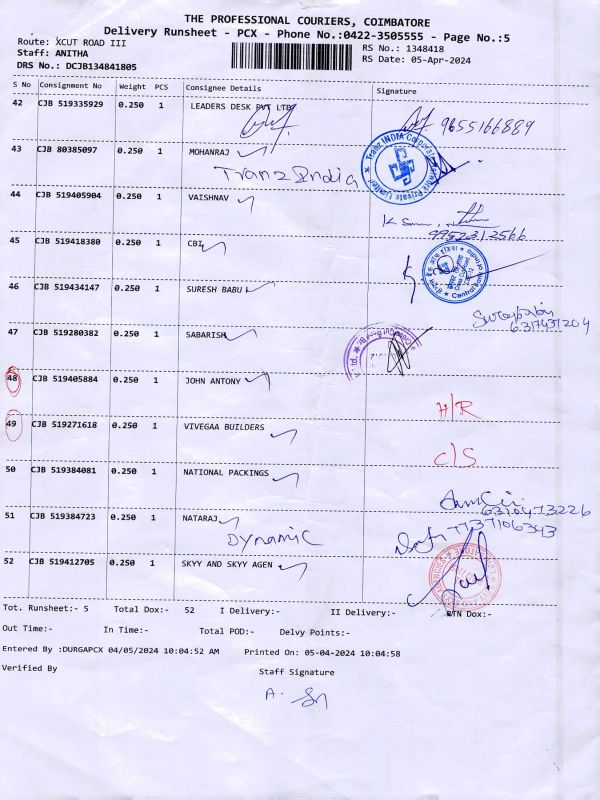 THE PROFESSIONAL COURIERS, COIMBATORE
Delivery Runsheet - PCX - Phone No.:0422-3505555 - Page No.:5
Route: XCUT ROAD III
Staff: ANITHA
DRS No.: DCJB134841805
RS No.: 1348418
RS Date: 05-Apr-2024
S No Consignment No Weight PCS Consignee Details Signature
42 CJB 519335929 0.250 1 LEADERS DESK PVT LTD 9655166889
43 CJB 80385097 0.250 1 MOHANRAJ
Tranz India
44 CJB 519405904 0.250 1 VAISHNAV
9952313566
45 CJB 519418380 0.250 1 CBI
46 CJB 519434147 0.250 1 SURESH BABU
47 CJB 519280382 0.250 1 SABARISH
48 CJB 519405884 0.250 1 JOHN ANTONY H/R
49 CJB 519271618 0.250 1 VIVEGAA BUILDERS C/S
50 CJB 519384081 0.250 1 NATIONAL PACKINGS
51 CJB 519384723 0.250 1 NATARAJ
Dynamic
52 CJB 519412705 0.250 1 SKYY AND SKYY AGEN
Tot. Runsheet:- 5 Total Dox:- 52 I Delivery:- II Delivery:- RTN Dox:-
Out Time:- In Time:- Total POD:- Delvy Points:-
Entered By :DURGAPCX 04/05/2024 10:04:52 AM Printed On: 05-04-2024 10:04:58
Verified By Staff Signature